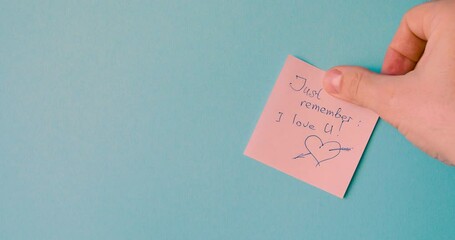 Just
remember:
I love U!